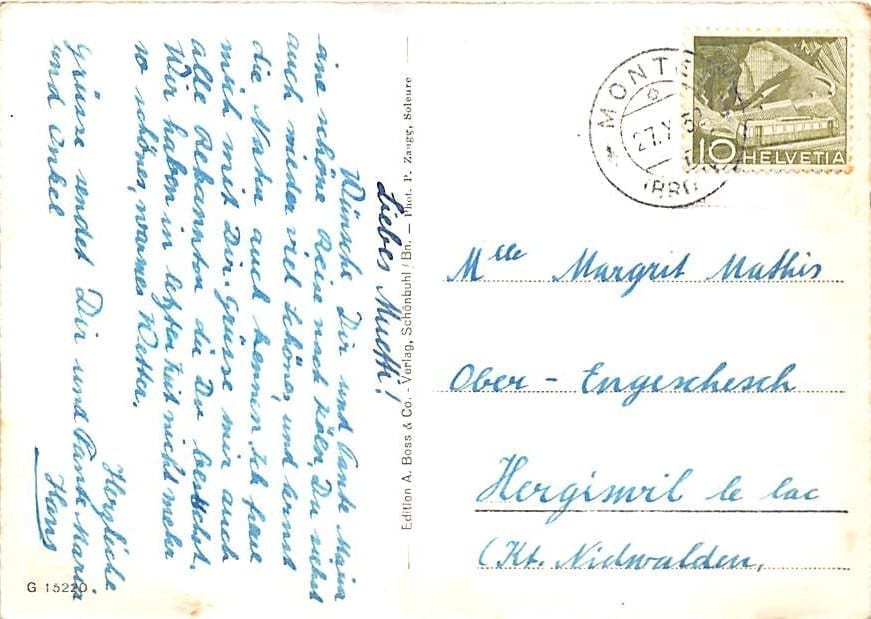 Liebes Muetti!
Wünsche Dir und Tante Maria
eine schöne Reise nach Köln, Du siehst
auch wieder viel Schönes und lernst
die Natur auch kennen. Ich freue
mich mit Dir. Grüsse mir auch
alle Bekannten die Du besuchst.
Wir haben in letzter Zeit nicht mehr
so schönes, warmes Wetter.
Herzliche
Grüsse sendet Dir und Tante Maria
und Onkel
Hans
G 15220.
Edition A. Boss & Co. - Verlag, Schönbuhl/Bn. — Phot. P. Zaugg, Soleure
MONT
27. X
10 HELVETIA
Mlle Margrit Mathis
Ober - Engeschesch
Hergiswil le lac
(Kt. Nidwalden,